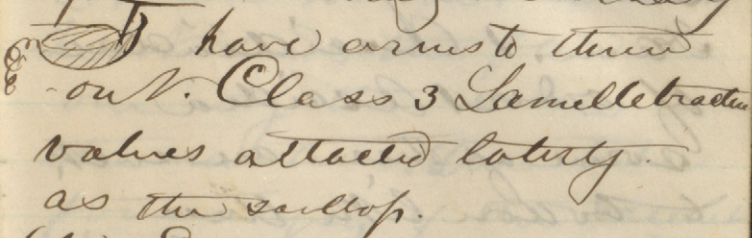 have arms to them
out. Class 3 Lamellebractea
valves attacted laterly.
as the scallop.